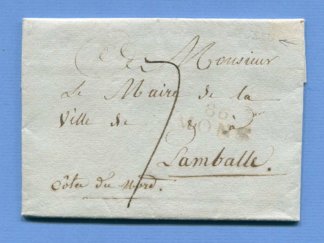 A Monsieur
Le Maire de la
Ville de & à
86
MONS
Lamballe.
Côtes du Nord.
7